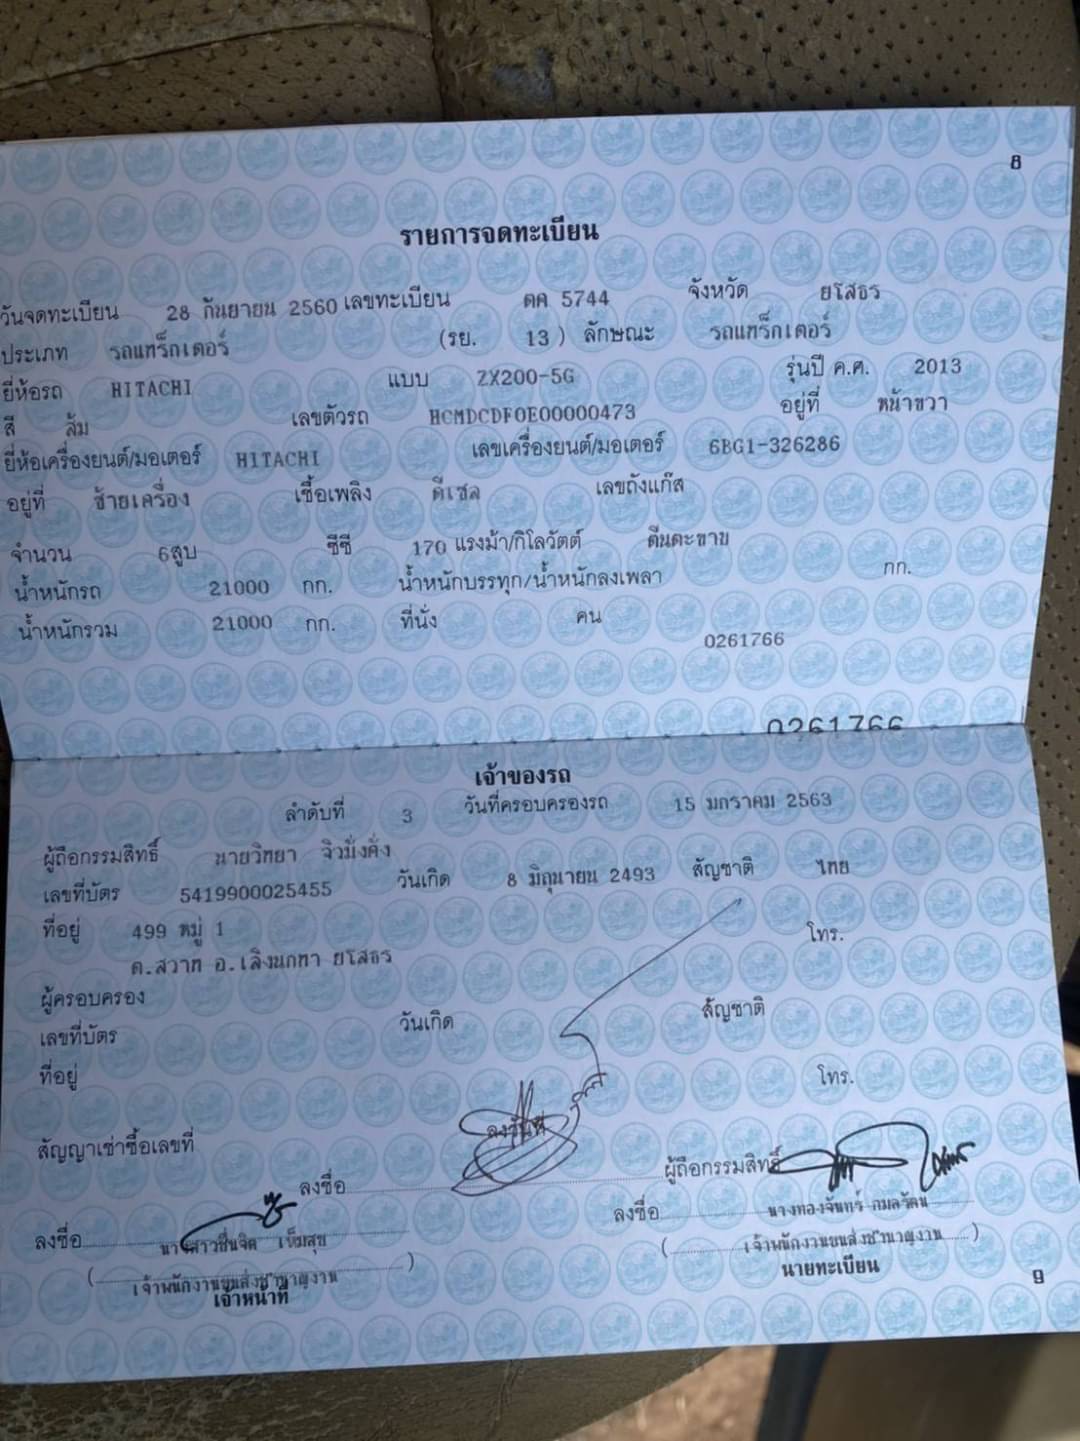 8
รายการจดทะเบียน
วันจดทะเบียน 28 กันยายน 2560 เลขทะเบียน ตค 5744 จังหวัด ยโสธร
ประเภท รถแทร็กเตอร์ (รย. 13) ลักษณะ รถแทร็กเตอร์
ยี่ห้อรถ HITACHI แบบ ZX200-5G รุ่นปี ค.ศ. 2013
สี ส้ม เลขตัวรถ HCMDCDF0E00000473 อยู่ที่ หน้าขวา
ยี่ห้อเครื่องยนต์/มอเตอร์ HITACHI เลขเครื่องยนต์/มอเตอร์ 6BG1-326286
อยู่ที่ ซ้ายเครื่อง เชื้อเพลิง ดีเซล เลขถังแก๊ส
จำนวน 6สูบ ซีซี 170 แรงม้า/กิโลวัตต์ ตีนตะขาบ
น้ำหนักรถ 21000 กก. น้ำหนักบรรทุก/น้ำหนักลงเพลา กก.
น้ำหนักรวม 21000 กก. ที่นั่ง คน
0261766
0261766
เจ้าของรถ
ลำดับที่ 3 วันที่ครอบครองรถ 15 มกราคม 2563
ผู้ถือกรรมสิทธิ์ นายวิทยา จิวมั่งคั่ง
เลขที่บัตร 5419900025455 วันเกิด 8 มิถุนายน 2493 สัญชาติ ไทย
ที่อยู่ 499 หมู่ 1 โทร.
ต.สวาท อ.เลิงนกทา ยโสธร
ผู้ครอบครอง
เลขที่บัตร วันเกิด สัญชาติ
ที่อยู่ โทร.
สัญญาเช่าซื้อเลขที่ ลงวันที่
ลงชื่อ ผู้ถือกรรมสิทธิ์
ลงชื่อ นางสาวชื่นจิต เข็มสุข ลงชื่อ นางทองจันทร์ กมลรัตน์
(เจ้าพนักงานขนส่งชำนาญงาน) (เจ้าพนักงานขนส่งชำนาญงาน)
เจ้าหน้าที่ นายทะเบียน
9